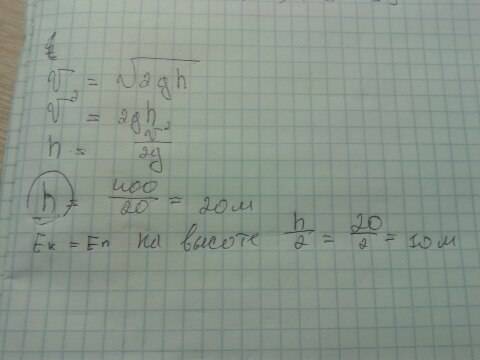 v = √2gh
v² = 2gh
h = v²/2g
h = 400/20 = 20м
Eк = Eп на высоте h/2 = 20/2 = 10м